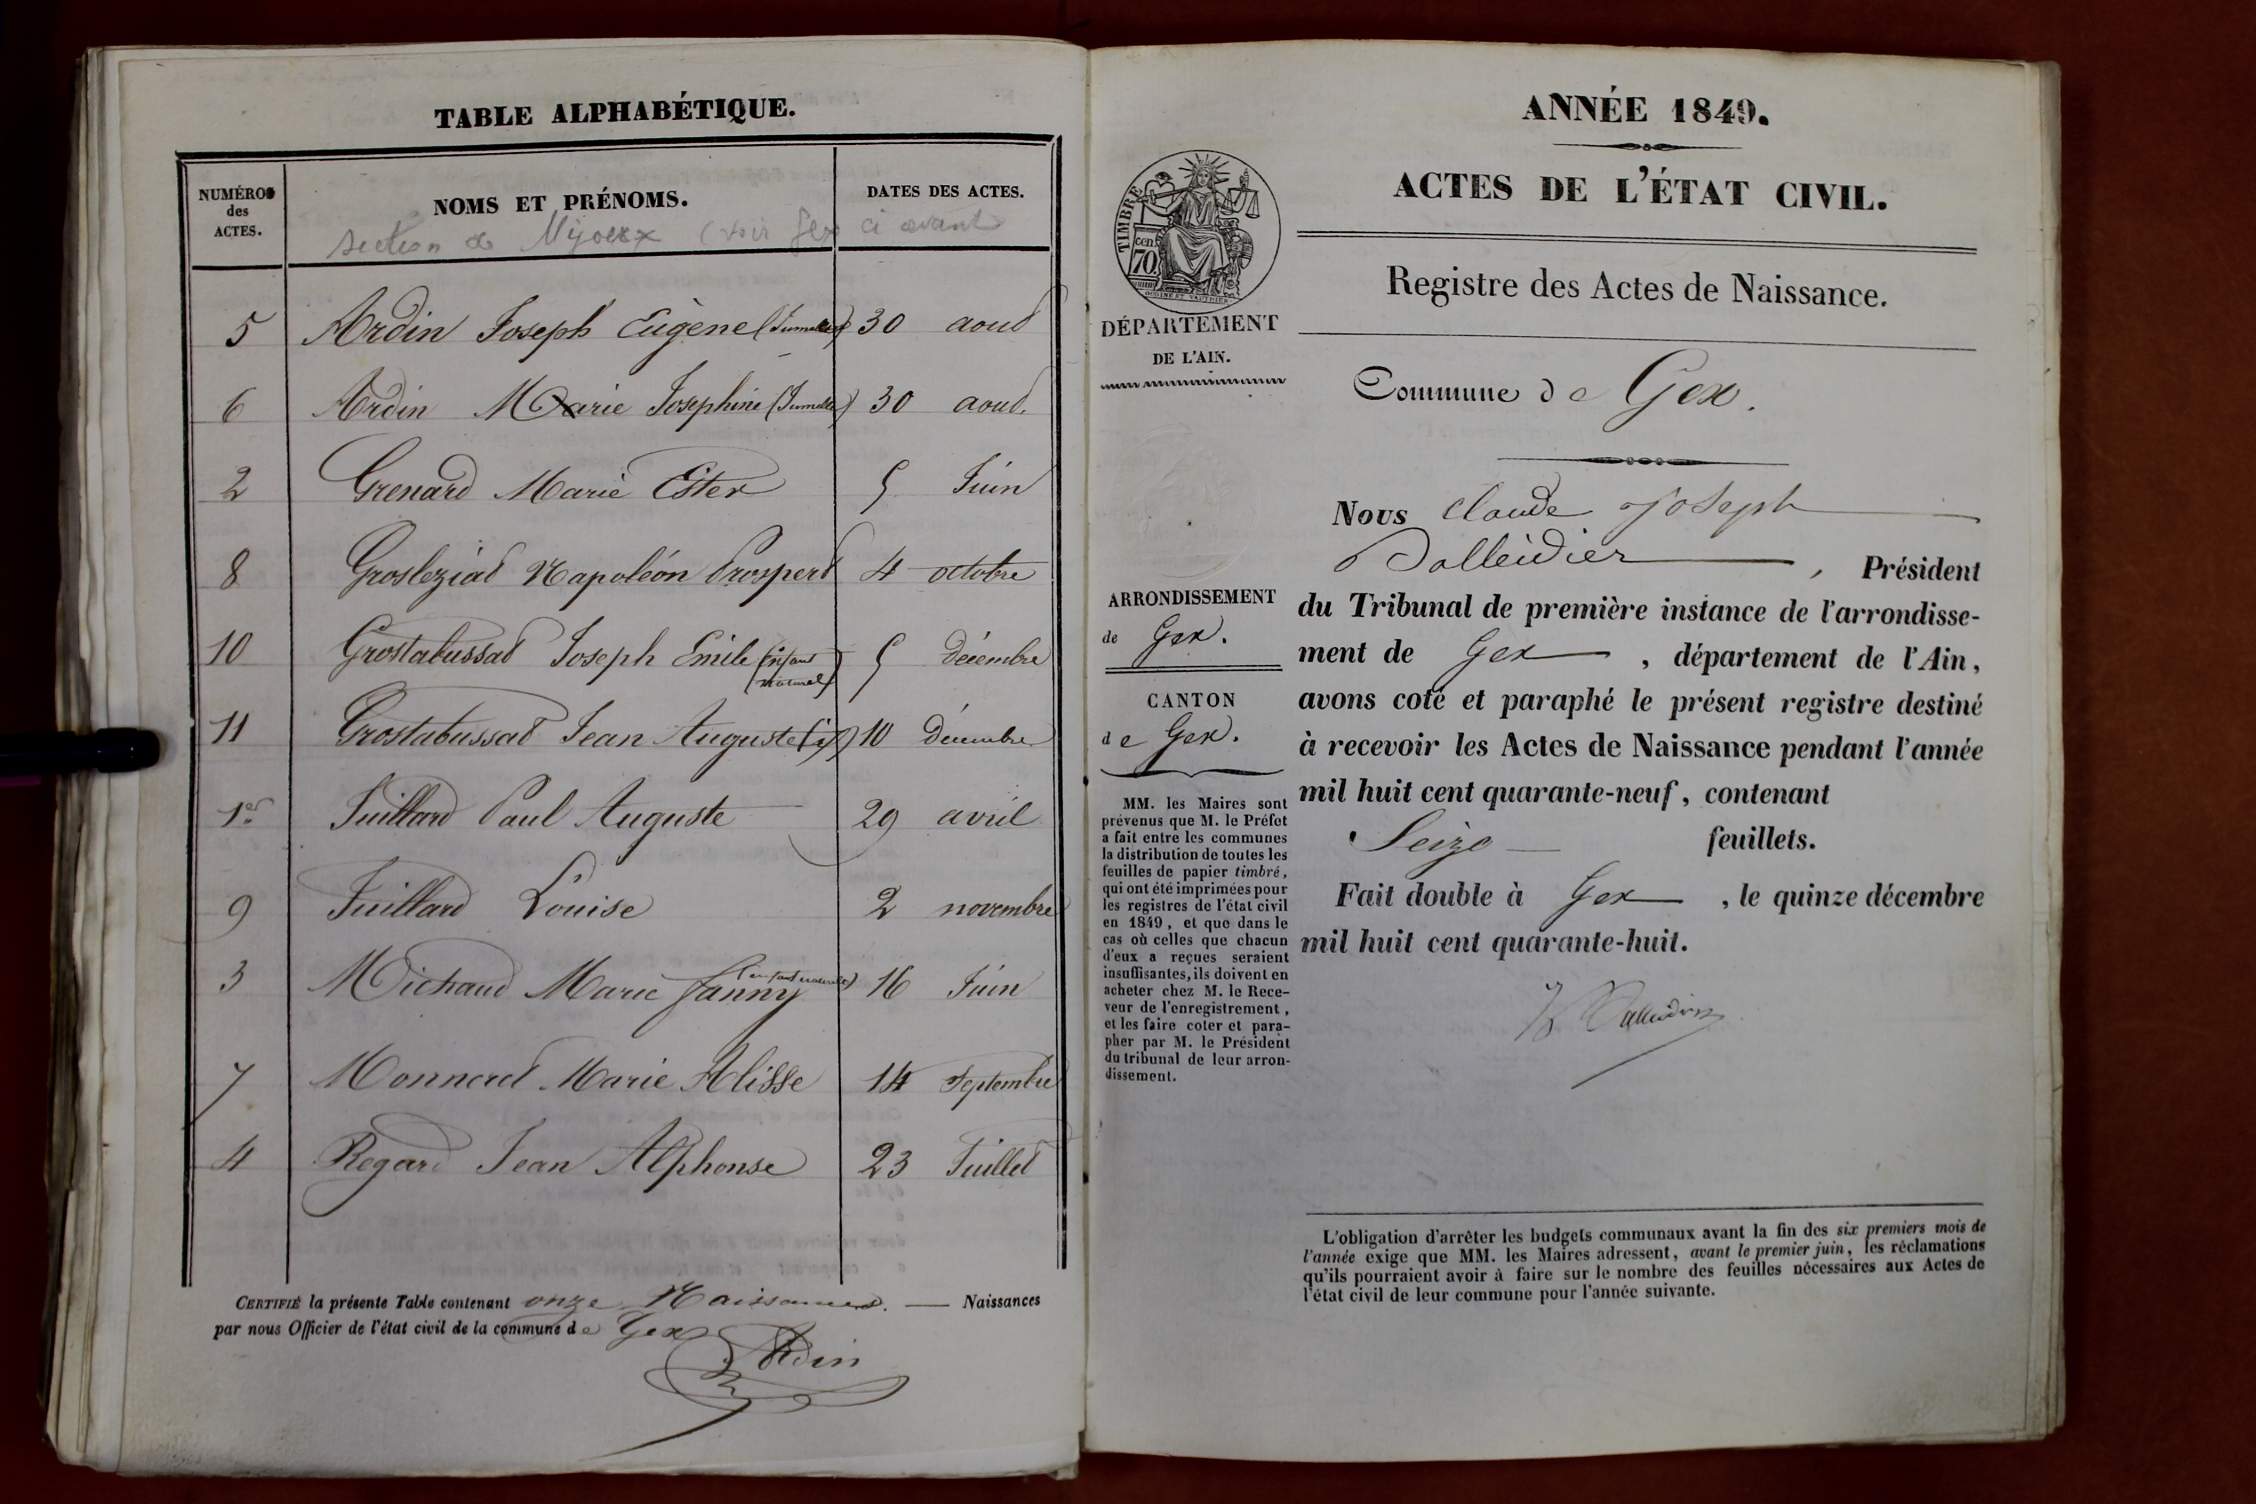 TABLE ALPHABÉTIQUE.
NUMÉROS
des
ACTES.
NOMS ET PRÉNOMS.
DATES DES ACTES.
section de Mijoux (voir Gex ci avant
5 Ardin Joseph Eugène (Jumeaux) 30 aout
6 Ardin Marie Josephine (Jumelle) 30 aout.
2 Grenard Marie Ester 5 Juin
8 Grosleziat Napoléon Prosperd 4 octobre
10 Grostabussat Joseph Emile (enfant naturel) 5 décembre
11 Grostabussat Jean Auguste 10 Décembre
1er Juillard Paul Auguste 29 avril
9 Juillard Louise 2 novembre
3 Michaud Marie fanny (enfant naturelle) 16 Juin
7 Monnard Marie Alisse 14 Septembre
4 Regard Jean Alphonse 23 Juillet
CERTIFIÉ la présente Table contenant onze Naissances. — Naissances
par nous Officier de l'état civil de la commune de Gex
Ardin
ANNÉE 1849.
ACTES DE L'ÉTAT CIVIL.
Registre des Actes de Naissance.
TIMBRE
cen.
70
DÉPARTEMENT
DE L'AIN.
Commune de Gex.
ARRONDISSEMENT
de Gex.
CANTON
de Gex.
MM. les Maires sont
prévenus que M. le Préfet
a fait entre les communes
la distribution de toutes les
feuilles de papier timbré,
qui ont été imprimées pour
les registres de l'état civil
en 1849, et que dans le
cas où celles que chacun
d'eux a reçues seraient
insuffisantes, ils doivent en
acheter chez M. le Rece-
veur de l'enregistrement,
et les faire coter et para-
pher par M. le Président
du tribunal de leur arron-
dissement.
Nous Claude Joseph
Dalleidier, Président
du Tribunal de première instance de l'arrondisse-
ment de Gex, département de l'Ain,
avons coté et paraphé le présent registre destiné
à recevoir les Actes de Naissance pendant l'année
mil huit cent quarante-neuf, contenant
Seize feuillets.
Fait double à Gex, le quinze décembre
mil huit cent quarante-huit.
L'obligation d'arrêter les budgets communaux avant la fin des six premiers mois de
l'année exige que MM. les Maires adressent, avant le premier juin, les réclamations
qu'ils pourraient avoir à faire sur le nombre des feuilles nécessaires aux Actes de
l'état civil de leur commune pour l'année suivante.